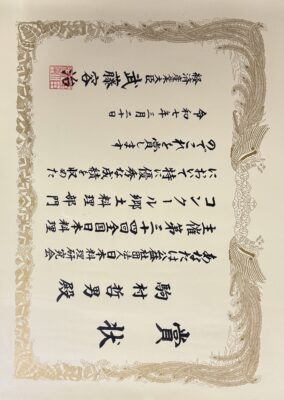 賞状
駒村哲男殿
あなたは公益社団法人日本料理研究会
主催第三十四回全国日本料理
コンクール郷土料理部門
において特に優秀な成績を収めた
のでこれを賞します
令和七年三月二十日
経済産業大臣 武藤容治